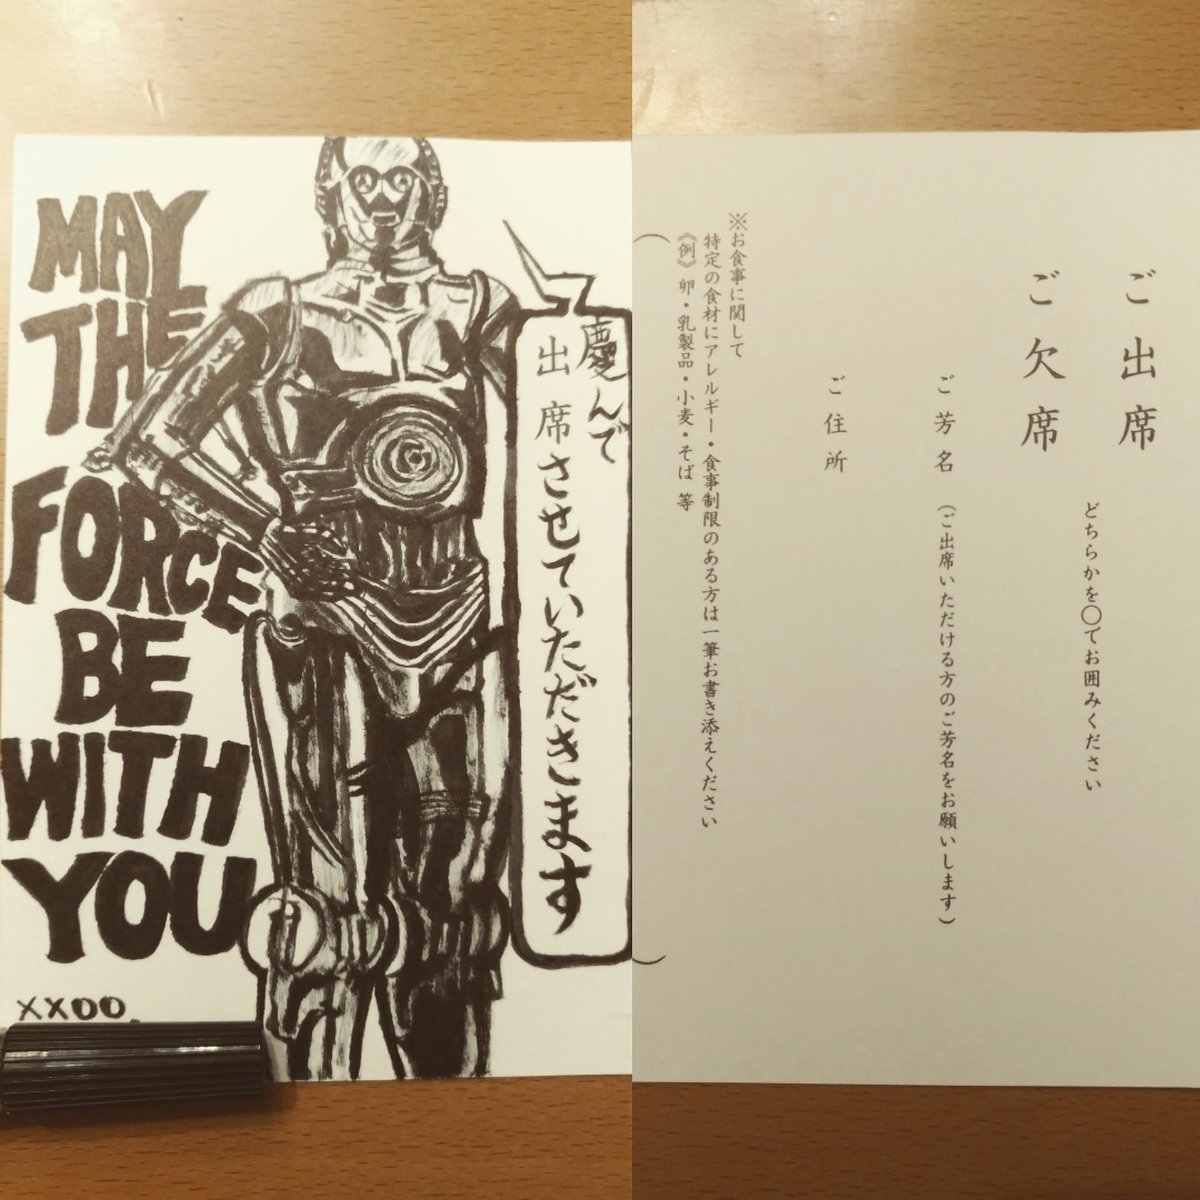 MAY
THE
FORCE
BE
WITH
YOU
xxoo.
慶んで
出席させていただきます
ご出席
どちらかを○でお囲みください
ご欠席
ご芳名 (ご出席いただける方のご芳名をお願いします)
ご住所
※お食事に関して
特定の食材にアレルギー・食事制限のある方は一筆お書き添えください
《例》卵・乳製品・小麦・そば 等
( )